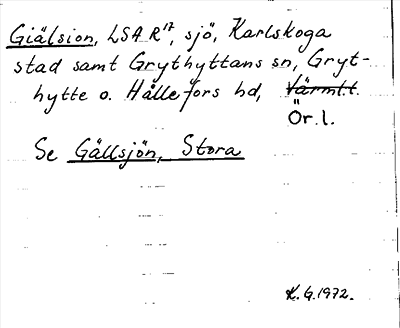 Giälsion, LSA R¹⁷, sjö, Karlskoga
stad samt Grythyttans sn, Gryt-
hytte o. Hällefors hd, Värml.l.
Ör.l.
Se Gällsjön, Stora
K.G.1972.